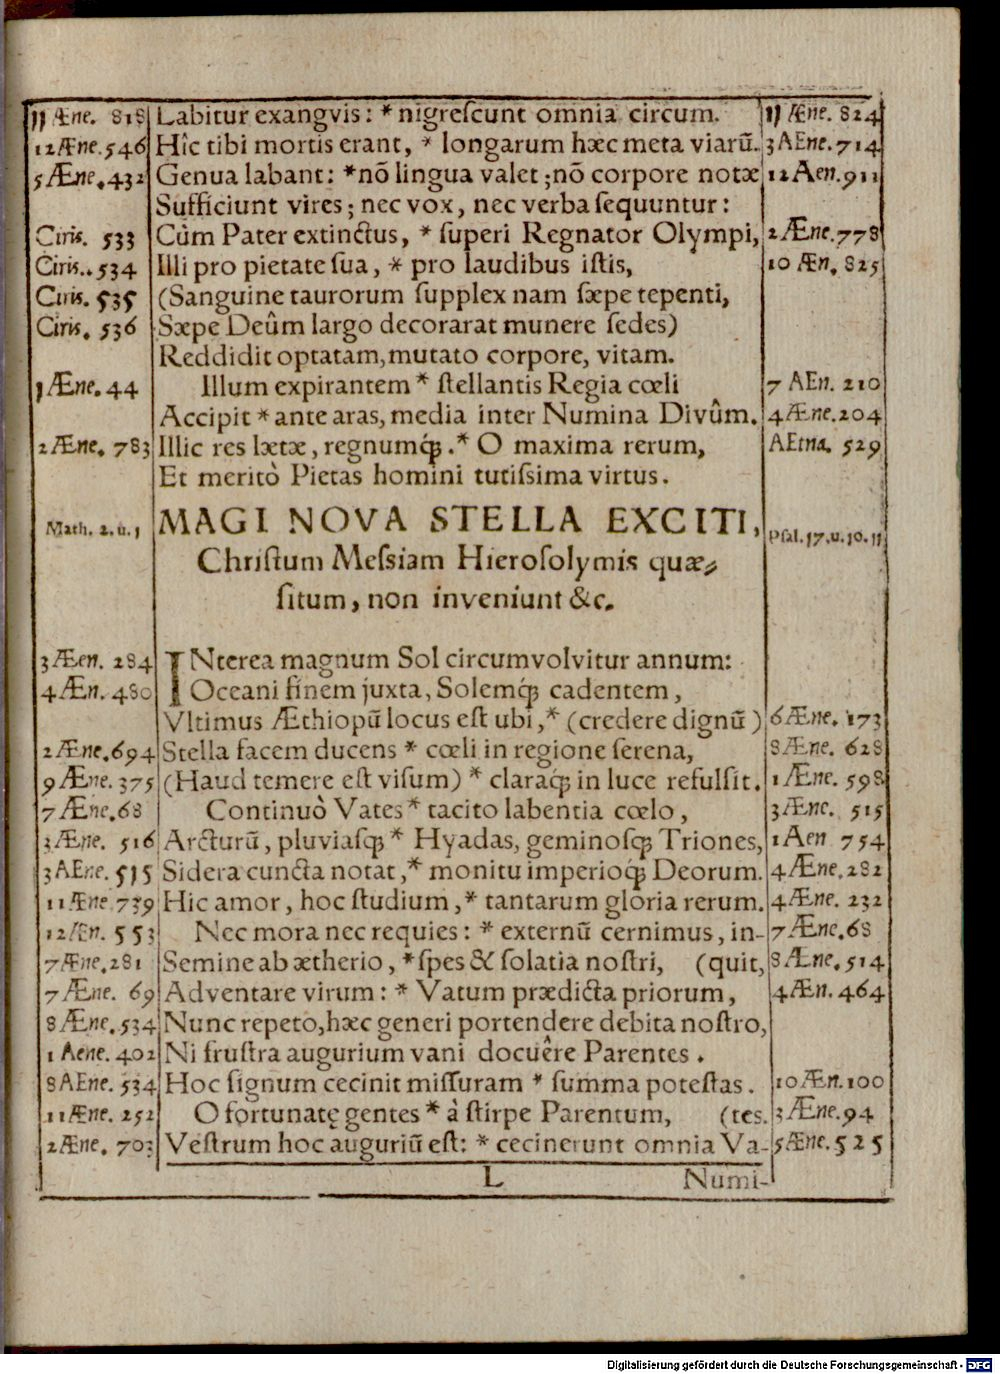 11 Æne. 818 Labitur exangvis: * nigreſcunt omnia circum. 11 Æne. 824
12 Æne. 546 Hîc tibi mortis erant, * longarum hæc meta viarũ. 3 AEne. 714
5 Æne. 432 Genua labant: * nõ lingua valet; nõ corpore notæ 12 Aen. 911
Sufficiunt vires; nec vox, nec verba ſequuntur:
Ciris. 533 Cùm Pater extinctus, * ſuperi Regnator Olympi, 2 Æne. 778
Ciris. 534 Illi pro pietate ſua, * pro laudibus iſtis, 10 Æn. 825
Ciris. 535 (Sanguine taurorum ſupplex nam ſæpe tepenti,
Ciris. 536 Sæpe Deûm largo decorarat munere ſedes)
Reddidit optatam, mutato corpore, vitam.
1 Æne. 44 Illum expirantem * ſtellantis Regia cœli 7 AEn. 210
Accipit * ante aras, media inter Numina Divûm. 4 Æne. 204
2 Æne. 783 Illic res lætæ, regnumq́;. * O maxima rerum, AEtna. 529
Et meritò Pietas homini tutiſsima virtus.
Math. 2. u. 1 MAGI NOVA STELLA EXCITI, Pſal. 17. u. 10. 11
Chriſtum Meſsiam Hieroſolymis quæ⸗
ſitum, non inveniunt &c.
3 Æen. 284 INterea magnum Sol circumvolvitur annum:
4 Æn. 480 Oceani finem juxta, Solemq́; cadentem,
Vltimus Æthiopũ locus eſt ubi, * (credere dignũ) 6 Æne. 173
2 Æne. 694 Stella facem ducens * cœli in regione ſerena, 8 Æne. 628
9 Æne. 375 (Haud temere eſt viſum) * claraq́; in luce refulſit. 1 Æne. 598
7 Æne. 68 Continuò Vates * tacito labentia cœlo, 3 Æne. 515
3 Æne. 516 Arcturũ, pluviaſq́; * Hyadas, geminoſq́; Triones, 1 Aen 754
3 AEne. 515 Sidera cuncta notat, * monitu imperioq́; Deorum. 4 Æne. 282
11 Æne. 739 Hic amor, hoc ſtudium, * tantarum gloria rerum. 4 Æne. 232
12 Æn. 553 Nec mora nec requies: * externũ cernimus, in- 7 Æne. 68
7 Æne. 281 Semine ab ætherio, * ſpes & ſolatia noſtri, (quit, 8 Æne. 514
7 Æne. 69 Adventare virum: * Vatum prædicta priorum, 4 Æn. 464
8 Æne. 534 Nunc repeto, hæc generi portendere debita noſtro,
1 Aene. 402 Ni fruſtra augurium vani docuêre Parentes.
8 AEne. 534 Hoc ſignum cecinit miſſuram * ſumma poteſtas. 10 Æn. 100
11 Æne. 252 O fortunatę gentes * à ſtirpe Parentum, (tes. 3 Æne. 94
2 Æne. 703 Veſtrum hoc auguriũ eſt: * cecinerunt omnia Va- 5 Æne. 525
L Numi-
Digitalisierung gefördert durch die Deutsche Forschungsgemeinschaft - DFG